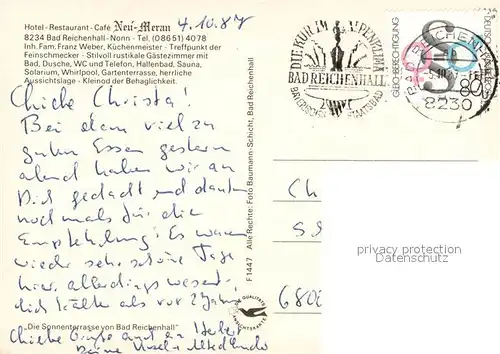 Hotel - Restaurant - Café Neu-Meran
4.10.87
8234 Bad Reichenhall-Nonn - Tel. (08651) 4078
Inh. Fam. Franz Weber, Küchenmeister · Treffpunkt der
Feinschmecker - Stilvoll rustikale Gästezimmer mit
Bad, Dusche, WC und Telefon, Hallenbad, Sauna,
Solarium, Whirlpool, Gartenterrasse, herrliche
Aussichtslage - Kleinod der Behaglichkeit.
Bei dem viel zu
guten Essen gestern
abend haben wir an
Dich gedacht und danken
nochmals für die
Empfehlung! Es waren
wieder sehr schöne Tage
hier, allerdings wesent-
lich kälter als vor 2 Jahren
"Die Sonnenterrasse von Bad Reichenhall"
Grüße auch an
F 1447 Alle Rechte: Foto Baumann-Schicht, Bad Reichenhall
QUALITÄTS
ANSICHTSKARTE
DIE KUR IM ALPENKLIMA
BAD REICHENHALL
BAYERISCHES STAATSBAD
GLEICHBERECHTIGUNG
DEUTSCHE BUNDESPOST
80
8230
Ch
680
privacy protection
samlerforum.com